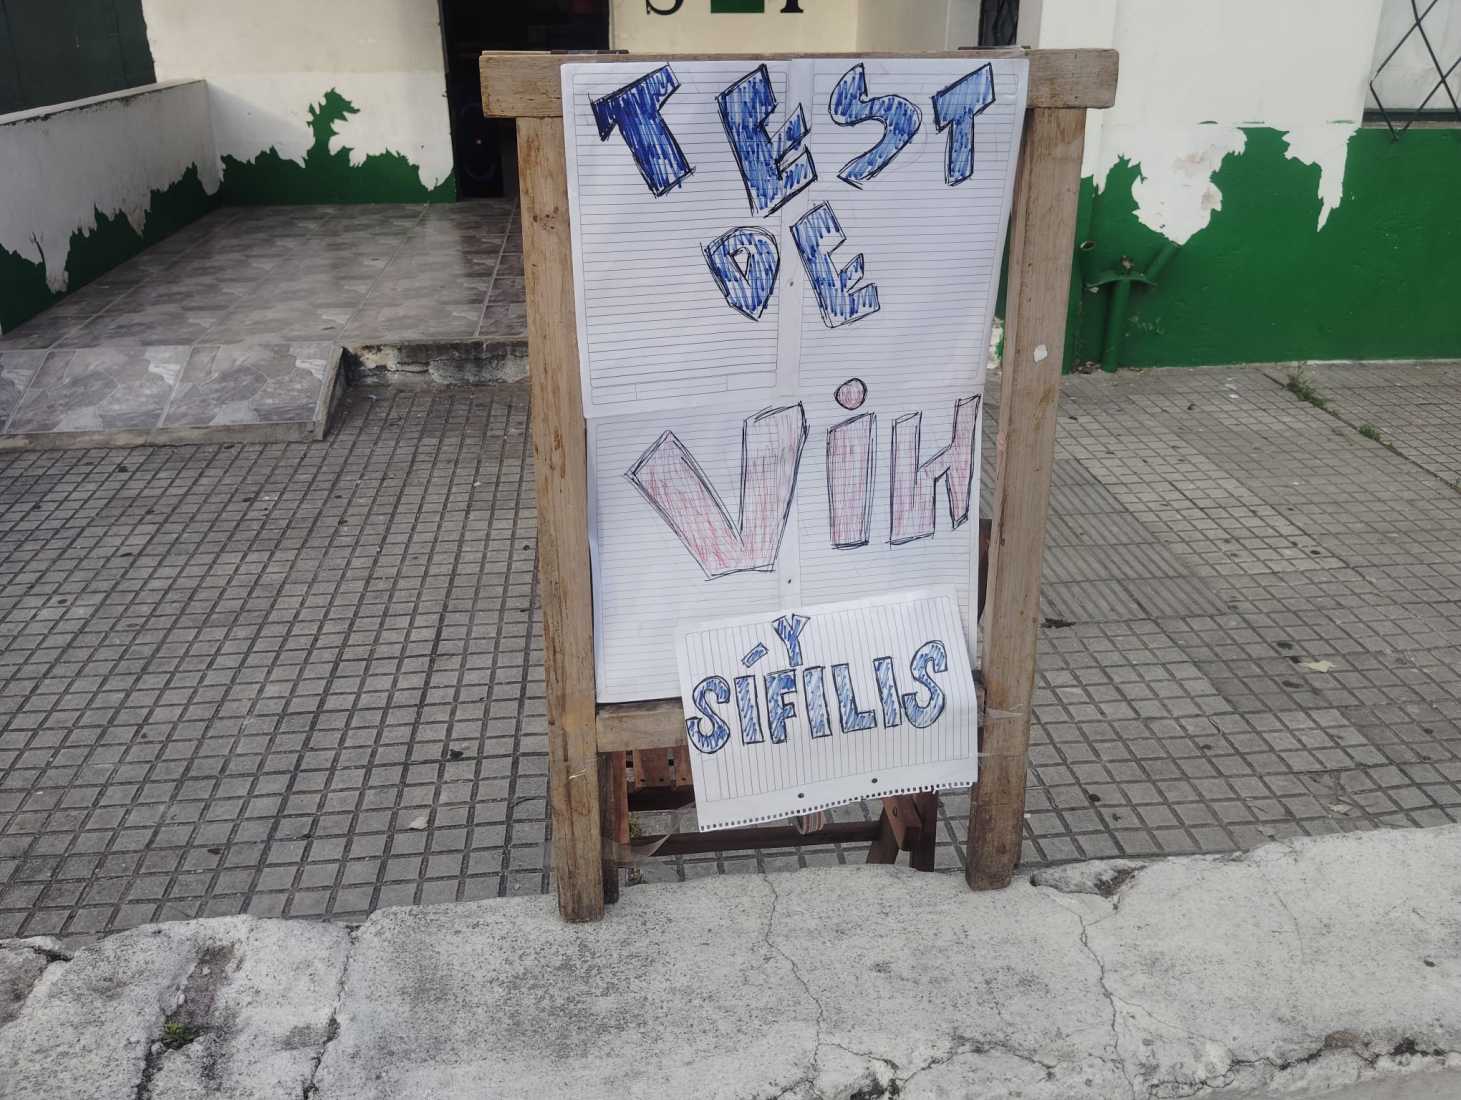 TEST
DE
ViH
Y
SÍFILIS